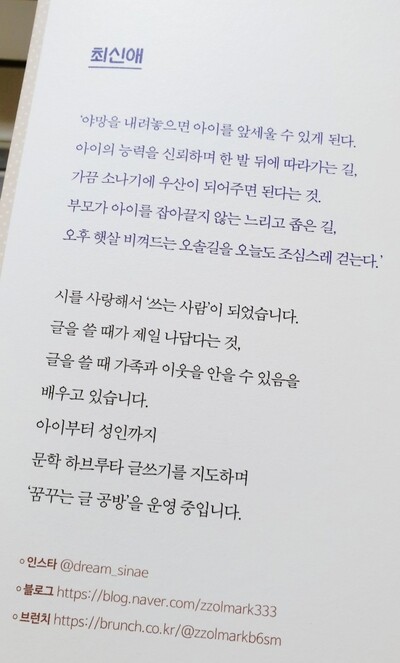 최신애
'야망을 내려놓으면 아이를 앞세울 수 있게 된다.
아이의 능력을 신뢰하며 한 발 뒤에 따라가는 길,
가끔 소나기에 우산이 되어주면 된다는 것.
부모가 아이를 잡아끌지 않는 느리고 좁은 길,
오후 햇살 비껴드는 오솔길을 오늘도 조심스레 걷는다.'
시를 사랑해서 '쓰는 사람'이 되었습니다.
글을 쓸 때가 제일 나답다는 것,
글을 쓸 때 가족과 이웃을 안을 수 있음을
배우고 있습니다.
아이부터 성인까지
문학 하브루타 글쓰기를 지도하며
'꿈꾸는 글 공방'을 운영 중입니다.
인스타 @dream_sinae
블로그 https://blog.naver.com/zzolmark333
브런치 https://brunch.co.kr/@zzolmarkb6sm